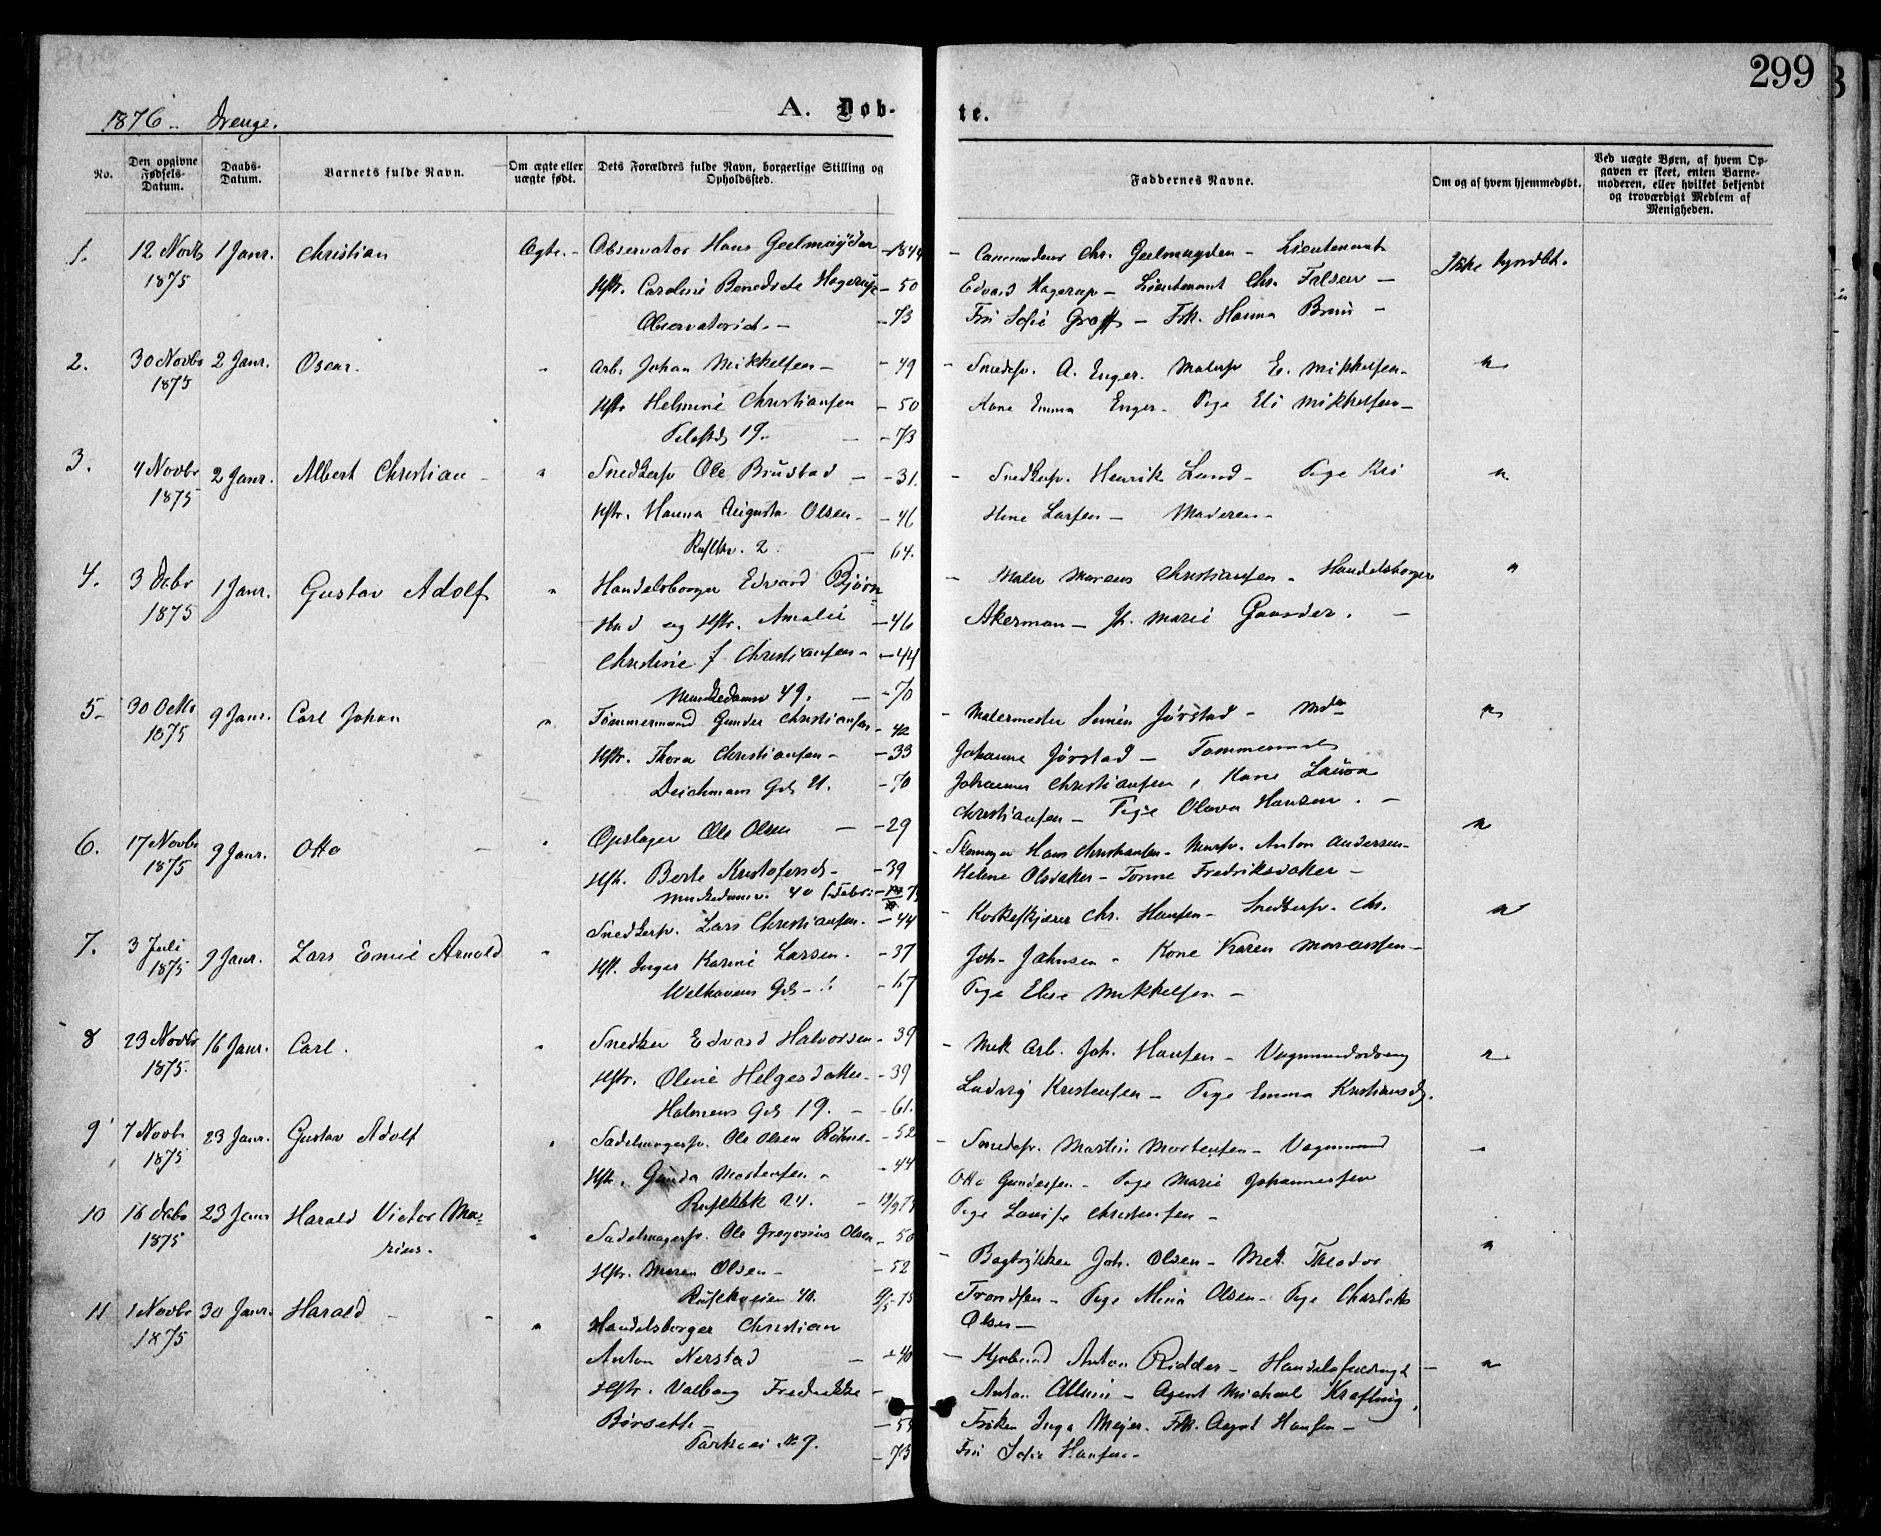 299
1876. Drenge.
A. Døb-
te.
No.
Den opgivne Fødsels-Datum.
Daabs-Datum.
Barnets fulde Navn.
Om ægte eller uægte født.
Dets Forældres fulde Navn, borgerlige Stilling og Opholdssted.
Faddernes Navne.
Om og af hvem hjemmedøbt.
Ved uægte Børn, af hvem Opgaven er skeet, enten Barnemoderen, eller hvilket bekjendt og troværdigt Medlem af Menigheden.
1. 12 Novb 1 Janr. Christian Ægte. - Observator Hans Geelmuyden - 1844
1875 Hstr. Caroline Benedicte Hagerup - 50
Observatoriet. - - 73
- Commandeur Chr. Geelmuyden - Lieutenant
Edvard Hagerup - Lieutenant Chr. Falsen -
Fru Sofie Graff - Frk. Hanna Bruun -
Ikke hjmdbt.
2. 30 Novbr 2 Janr. Oscar. " Arb. Johan Mikkelsen - - 49
1875 Hstr Helmine Christiansen - 50
19. - - 73
- Snedkp. A. Enger. Malersv E. Mikkelsen -
Kone Emma Enger - Pige Eli Mikkelsen -
"
3. 4 Novbr 2 Janr. Albert Christian - " Snedkersv Ole Brustad - - 31.
1875 Hstr. Hanna Augusta Olsen - - 46
2. - 64.
- Snedkersv. Henrik Lund - Pige Kri
stine Larsen - Moderen -
"
4. 3 Debr 1 Janr. Gustav Adolf " Handelsborger Edvard Bjørn=
1875 stad og Hstr. Amalie - 46
Christine f Christiansen - - 44
Munkedamsv 49. - - 70
- Maler Marcus Christiansen - Handelsborger
Akerman - Jfr. Marie Gaarder. -
"
5 - 30 Octbr 9 Janr. Carl Johan " Tømmermand Gunder Christiansen - 42
1875 Hstr. Thora Christiansen - - 33
Deichmans Gd 21. - 70
- Malermester Simen Jørstad - Md
Johanne Jørstad - Tømmermd
Johannes Christiansen, Kone Laura
Christiansen - Pige Olava Hansen. -
"
6. 17 Novbr 9 Janr. Otto - " Opslager Ole Olsen - - 29
1875 Hstr. Berte Kristofersd - - 39
Munkedamsv. 40
- Hans Christiansen - Anton Andersen -
Helene Olsdatter - Tomine Fredriksdatter -
"
7. 3 Juli 9 Janr. Lars Emil Arnold " Snedkersv. Lars Christiansen. - 44
1875 Hst. Inger Karine Larsen. - 37
Welhavens Gd - - 67
- Korkeskjærer Chr. Hansen - Snedkersv. Chr.
Joh. Johnsen - Kone Karen Marcussen -
Pige Elise Mikkelsen -
"
8 23 Novbr 16 Janr. Carl. " Snedker Edvard Halvorsen - 39
1875. Hstr. Oline Helgesdatter - - 39
Holmens Gd 19. - - 61.
- Mek Arb. Joh. Hansen - Vognmandsdreng
Ludvig Kristensen - Pige Emma Kristiansd.
"
9 7 Novb 23 Janr. Gustav Adolf " Sadelmagersv. Ole Olsen - 52
1875 Hstr. Gunda Mortensen " - 44
24. -
- Snedsv. Martin Mortensen - Vognmand
Otto Gundersen - Pige Marie Johannessen
Pige Lovise Christensen -
10 16 Debr 23 Janr Harald Victor Ma=
1875 rius. " Sadelmagersv. Ole Gregorius Olsen - 50
Hstr. Maren Olsen - - 52
40.
- Bogtrykker Joh. Olsen - Mek. Theodor
Trondsen - Pige Mina Olsen - Pige Charlotte
Olsen -
"
11 1 Novbr 30 Janr. Harald - - " Handelsborger Christian
1875 Anton Nerstad - - 46
Hstr. Valborg Fredrikke -
Børseth - - 55
Parkvei No 9. - 75
- Kjøbmd Anton Ridder - -
Anton - Agent Michael
Frøken Inga Meyer. Frk. Aagot Hansen -
Fru Sofie Hansen -
"